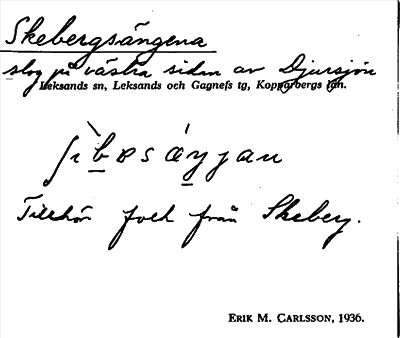 Skebergsängena
slog på västra sidan av Djursjön
Leksands sn, Leksands och Gagnefs tg, Kopparbergs län.
ʃìbɐsáyjan
Tillhör folk från Skeberg.
ERIK M. CARLSSON, 1936.